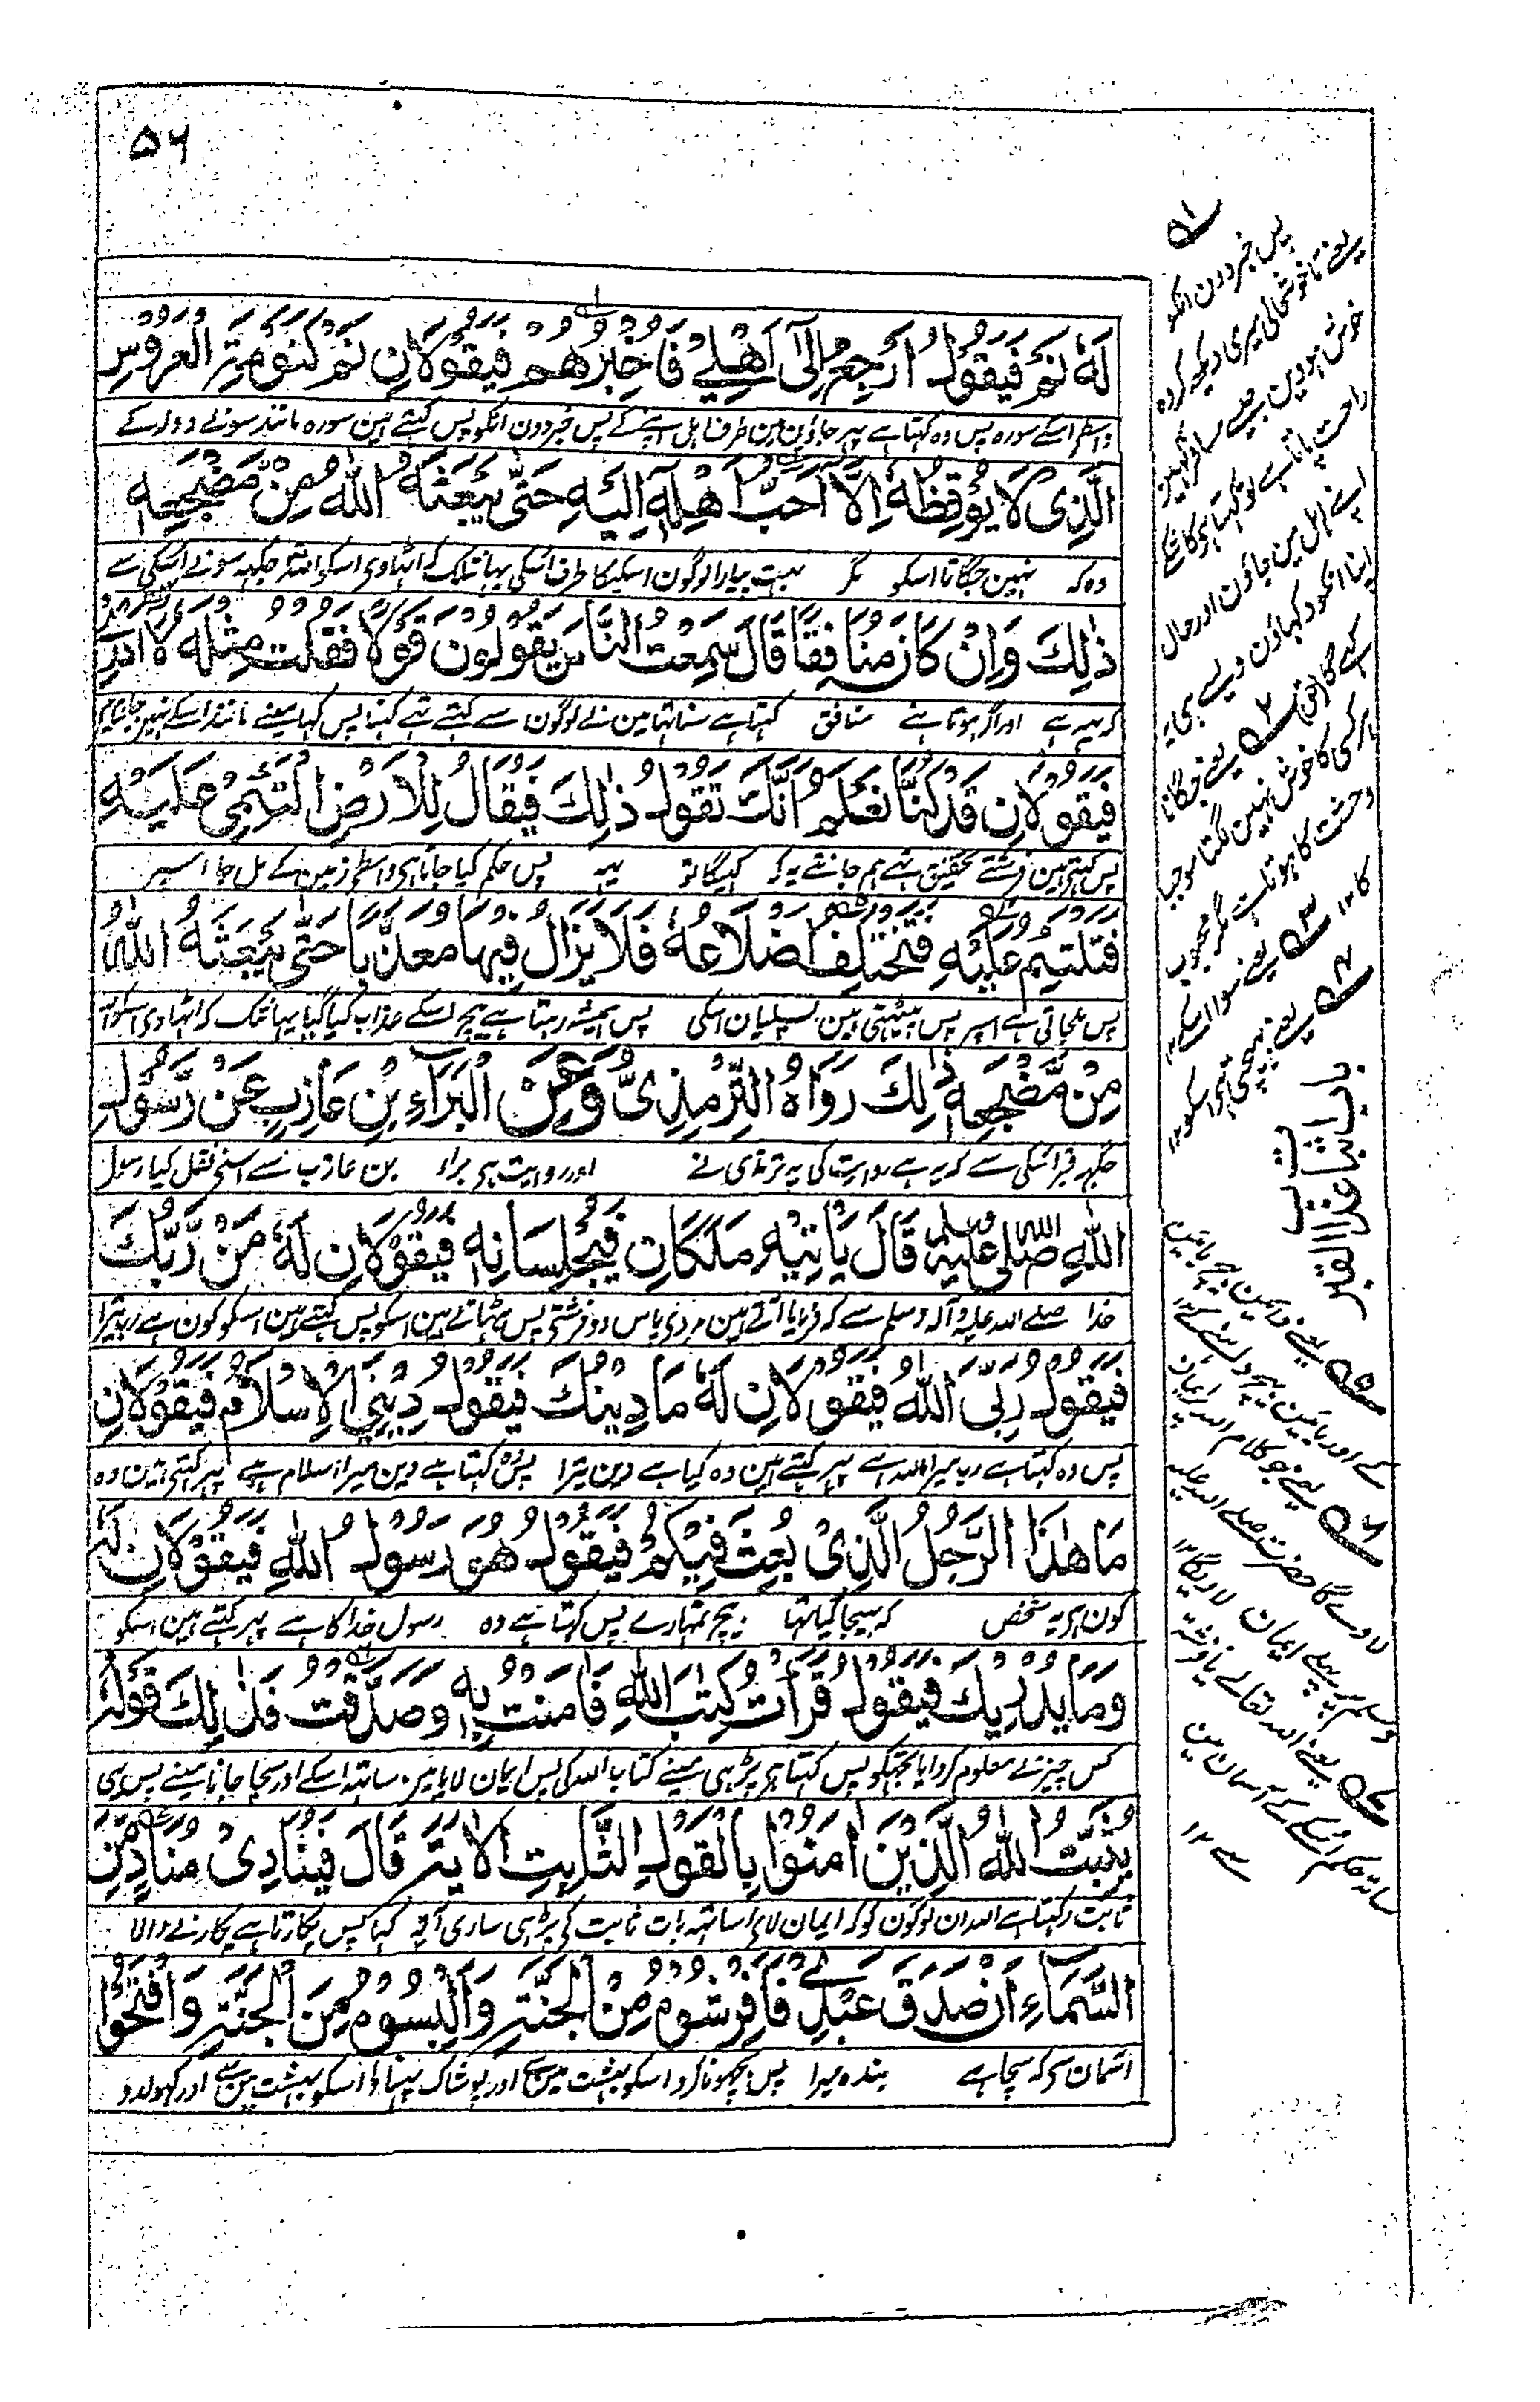 ۵۶
لَهٗ نَمْ فَيَقُوْلُ اَرْجِعُ اِلٰى اَهْلِيْ فَاُخْبِرُهُمْ فَيَقُوْلَانِ نَمْ كَنَوْمَةِ الْعَرُوْسِ
واسطے اسکے سورہ پس وہ کہتا ہے پہر جاؤن مین طرف اہل اپنے کے پس خبر دون انکو پس کہتے ہین سورہ مانند سونے دولہ کے
الَّذِىْ لَا يُوْقِظُهٗ اِلَّا اَحَبُّ اَهْلِهٖ اِلَيْهِ حَتّٰى يَبْعَثَهُ اللّٰهُ مِنْ مَّضْجَعِهٖ
وہ کہ نہین جگاتا اسکو مگر بہت پیارا لوگون اسکیکا طرف اسکی یہانتک کہ اٹہاوی اسکو اللہ جگہہ سونے اسکی سے
ذٰلِكَ وَاِنْ كَانَ مُنَافِقًا قَالَ سَمِعْتُ النَّاسَ يَقُوْلُوْنَ قَوْلًا فَقُلْتُ مِثْلَهٗ لَا اَدْرِىْ
کہ یہہ ہے اور اگر ہوتا ہے منافق کہتا ہے سنا تہا مین نے لوگون سے کہتے تہے کہنا پس کہا مینے مانند اسکے نہین جانتا
فَيَقُوْلَانِ قَدْ كُنَّا نَعْلَمُ اَنَّكَ تَقُوْلُ ذٰلِكَ فَيُقَالُ لِلْاَرْضِ الْتَئِمِىْ عَلَيْهِ
پس کہتے ہین فرشتے تحقیق تہے ہم جانتے یہ کہ کہیگا تو یہہ پس حکم کیا جاتا ہی واسطے زمین کے مل جا اسپر
فَتَلْتَئِمُ عَلَيْهِ فَتَخْتَلِفُ اَضْلَاعُهٗ فَلَا يَزَالُ فِيْهَا مُعَذَّبًا حَتّٰى يَبْعَثَهُ اللّٰهُ
پس ملجاتی ہے اسپر پس بیٹہتی ہین پسلیان اسکی پس ہمیشہ رہتا ہے بیچ اسکے عذاب کیا گیا یہانتک کہ اٹہاوی اسکو اللہ
مِنْ مَّضْجَعِهٖ ذٰلِكَ رَوَاهُ التِّرْمِذِىُّ وَعَنِ الْبَرَآءِ بْنِ عَازِبٍ عَنْ رَّسُوْلِ
جگہہ قبر اسکی سے کہ یہ ہے روایت کی یہ ترمذی نے اور روایت ہی براء بن عازب سے اسنے نقل کیا رسول
اللّٰهِ صلى الله عليه وسلم قَالَ يَأْتِيْهِ مَلَكَانِ فَيُجْلِسَانِهٖ فَيَقُوْلَانِ لَهٗ مَنْ رَّبُّكَ
خدا صلے اللہ علیہ وآلہ وسلم سے کہ فرمایا آتے ہین مردی پاس دو فرشتی پس بٹہاتے ہین اسکو پس کہتے ہین اسکو کون ہے رب تیرا
فَيَقُوْلُ رَبِّىَ اللّٰهُ فَيَقُوْلَانِ لَهٗ مَا دِيْنُكَ فَيَقُوْلُ دِيْنِىَ الْاِسْلَامُ فَيَقُوْلَانِ
پس وہ کہتا ہے رب میرا اللہ ہے پہر کہتے ہین وہ کیا ہے دین تیرا پس کہتا ہے دین میرا اسلام ہے پہر کہتے ہین وہ
مَا هٰذَا الرَّجُلُ الَّذِىْ بُعِثَ فِيْكُمْ فَيَقُوْلُ هُوَ رَسُوْلُ اللّٰهِ فَيَقُوْلَانِ لَهٗ
کون ہی یہ شخص کہ بہیجا گیا تہا بیچ تمہارے پس کہتا ہے وہ رسول خدا کا ہے پہر کہتے ہین اسکو
وَمَا يُدْرِيْكَ فَيَقُوْلُ قَرَأْتُ كِتٰبَ اللّٰهِ فَاٰمَنْتُ بِهٖ وَصَدَّقْتُ فَذٰلِكَ قَوْلُهٗ
کس چیز نے معلوم کروایا تجہکو پس کہتا ہی پڑہی مینے کتاب اللہ کی پس ایمان لایا مین ساتہ اسکے اور سچا جانا مینے پس یہی
يُثَبِّتُ اللّٰهُ الَّذِيْنَ اٰمَنُوْا بِالْقَوْلِ الثَّابِتِ الْاٰيَةَ قَالَ فَيُنَادِىْ مُنَادٍ مِّنَ
ثابت رکہتا ہے اللہ ان لوگون کو کہ ایمان لائے ساتہہ بات ثابت کی پڑہی ساری آیة کہا پس پکارتا ہے پکارنے والا
السَّمَآءِ اَنْ صَدَقَ عَبْدِىْ فَاَفْرِشُوْهُ مِنَ الْجَنَّةِ وَاَلْبِسُوْهُ مِنَ الْجَنَّةِ وَافْتَحُوْا
آسمان سی کہ سچا ہے بندہ میرا پس بچہونا کرو اسکو بہشت مین سے اور پوشاک پہناؤ اسکو بہشت مین سے اور کہولدو
پس خبر دون انکو
یعنے تا خوشحالی میری دیکہہ کر وہ
خوش ہووین جیسے مسافر کہین
راحت پاتا ہے تو کہتا ہی کاشکے
اپنے اہل مین جاؤن اور حال
اپنا انکو دکہاؤن ویسے ہی یہ
کہے گا
یعنے جگانا
ہر کسی کا خوش نہین لگتا موجب
وحشت کا ہوتا ہے مگر محبوب
کا ۱۲
یعنے سوا اسکے ۱۲
باب اثبات عذاب القبر
یعنے جو کلام اللہ پر ایمان
لاوے گا حضرت صلے اللہ علیہ
وسلم پر پہلے ایمان لاویگا ۱۲
یعنے اللہ تعالے یا فرشتہ
ساتہ حکم اسکے کے آسمان مین
سے ۱۲